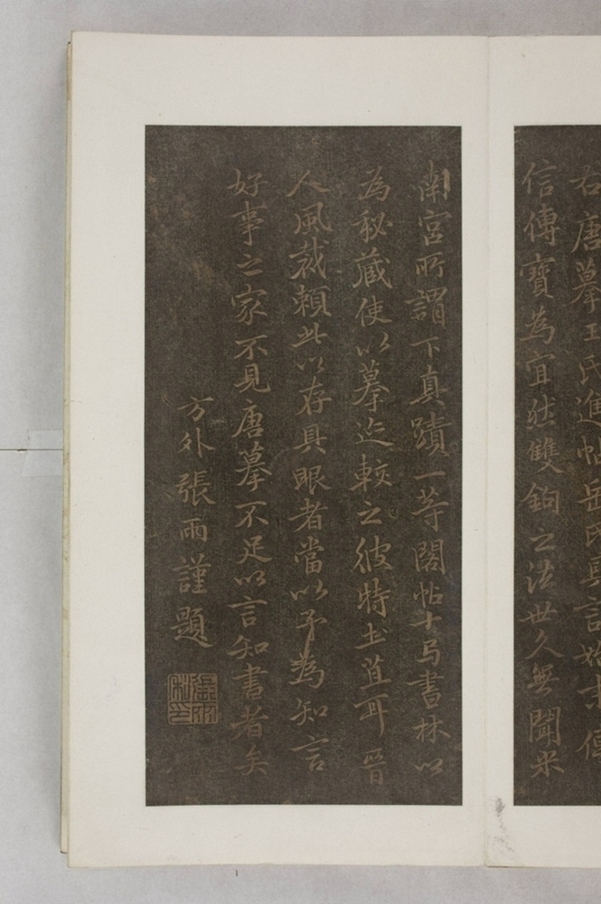 右唐摹王氏進帖岳氏具言始末傳
信傳寶為宜然雙鉤之法世久無聞米
南宮所謂下真蹟一等閣帖十局書林以
為秘藏使以摹迹較之彼特土苴耳晉
人風裁賴此以存具眼者當以予為知言
好事之家不見唐摹不足以言知書者矣
方外張雨謹題
張雨